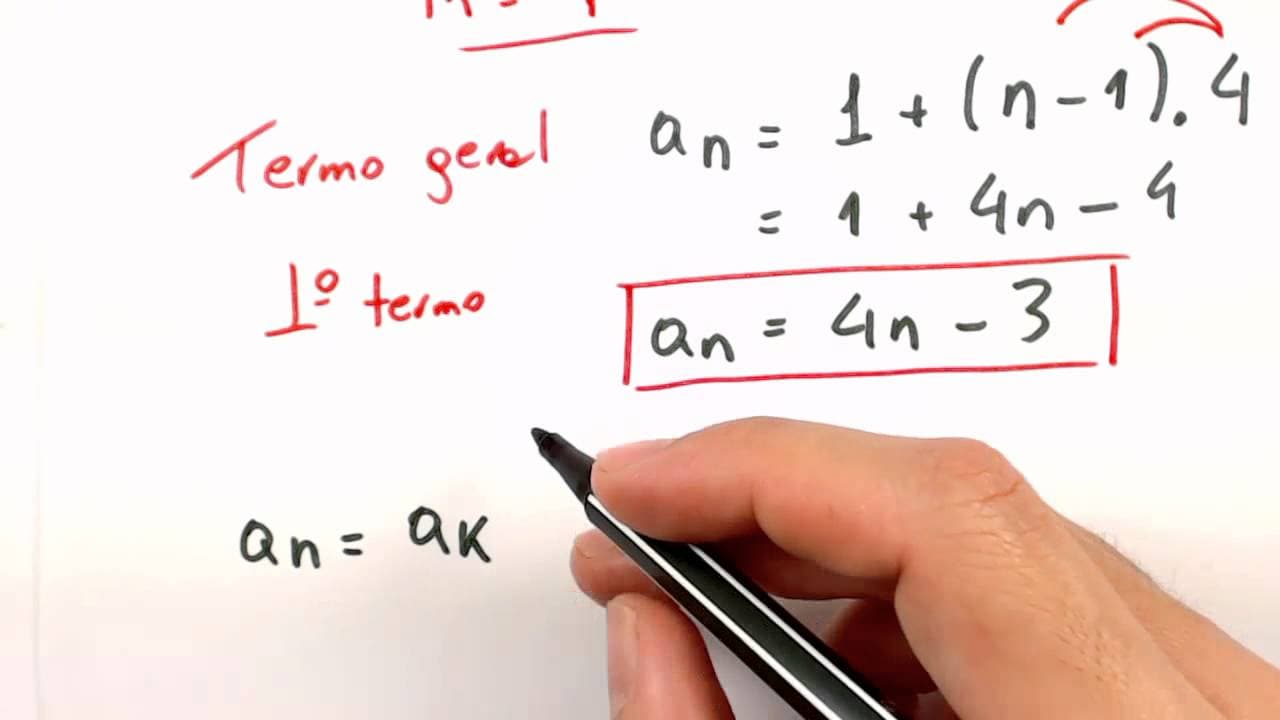 Termo geral
aₙ = 1 + (n - 1) . 4
= 1 + 4n - 4
1º termo
aₙ = 4n - 3
aₙ = aₖ